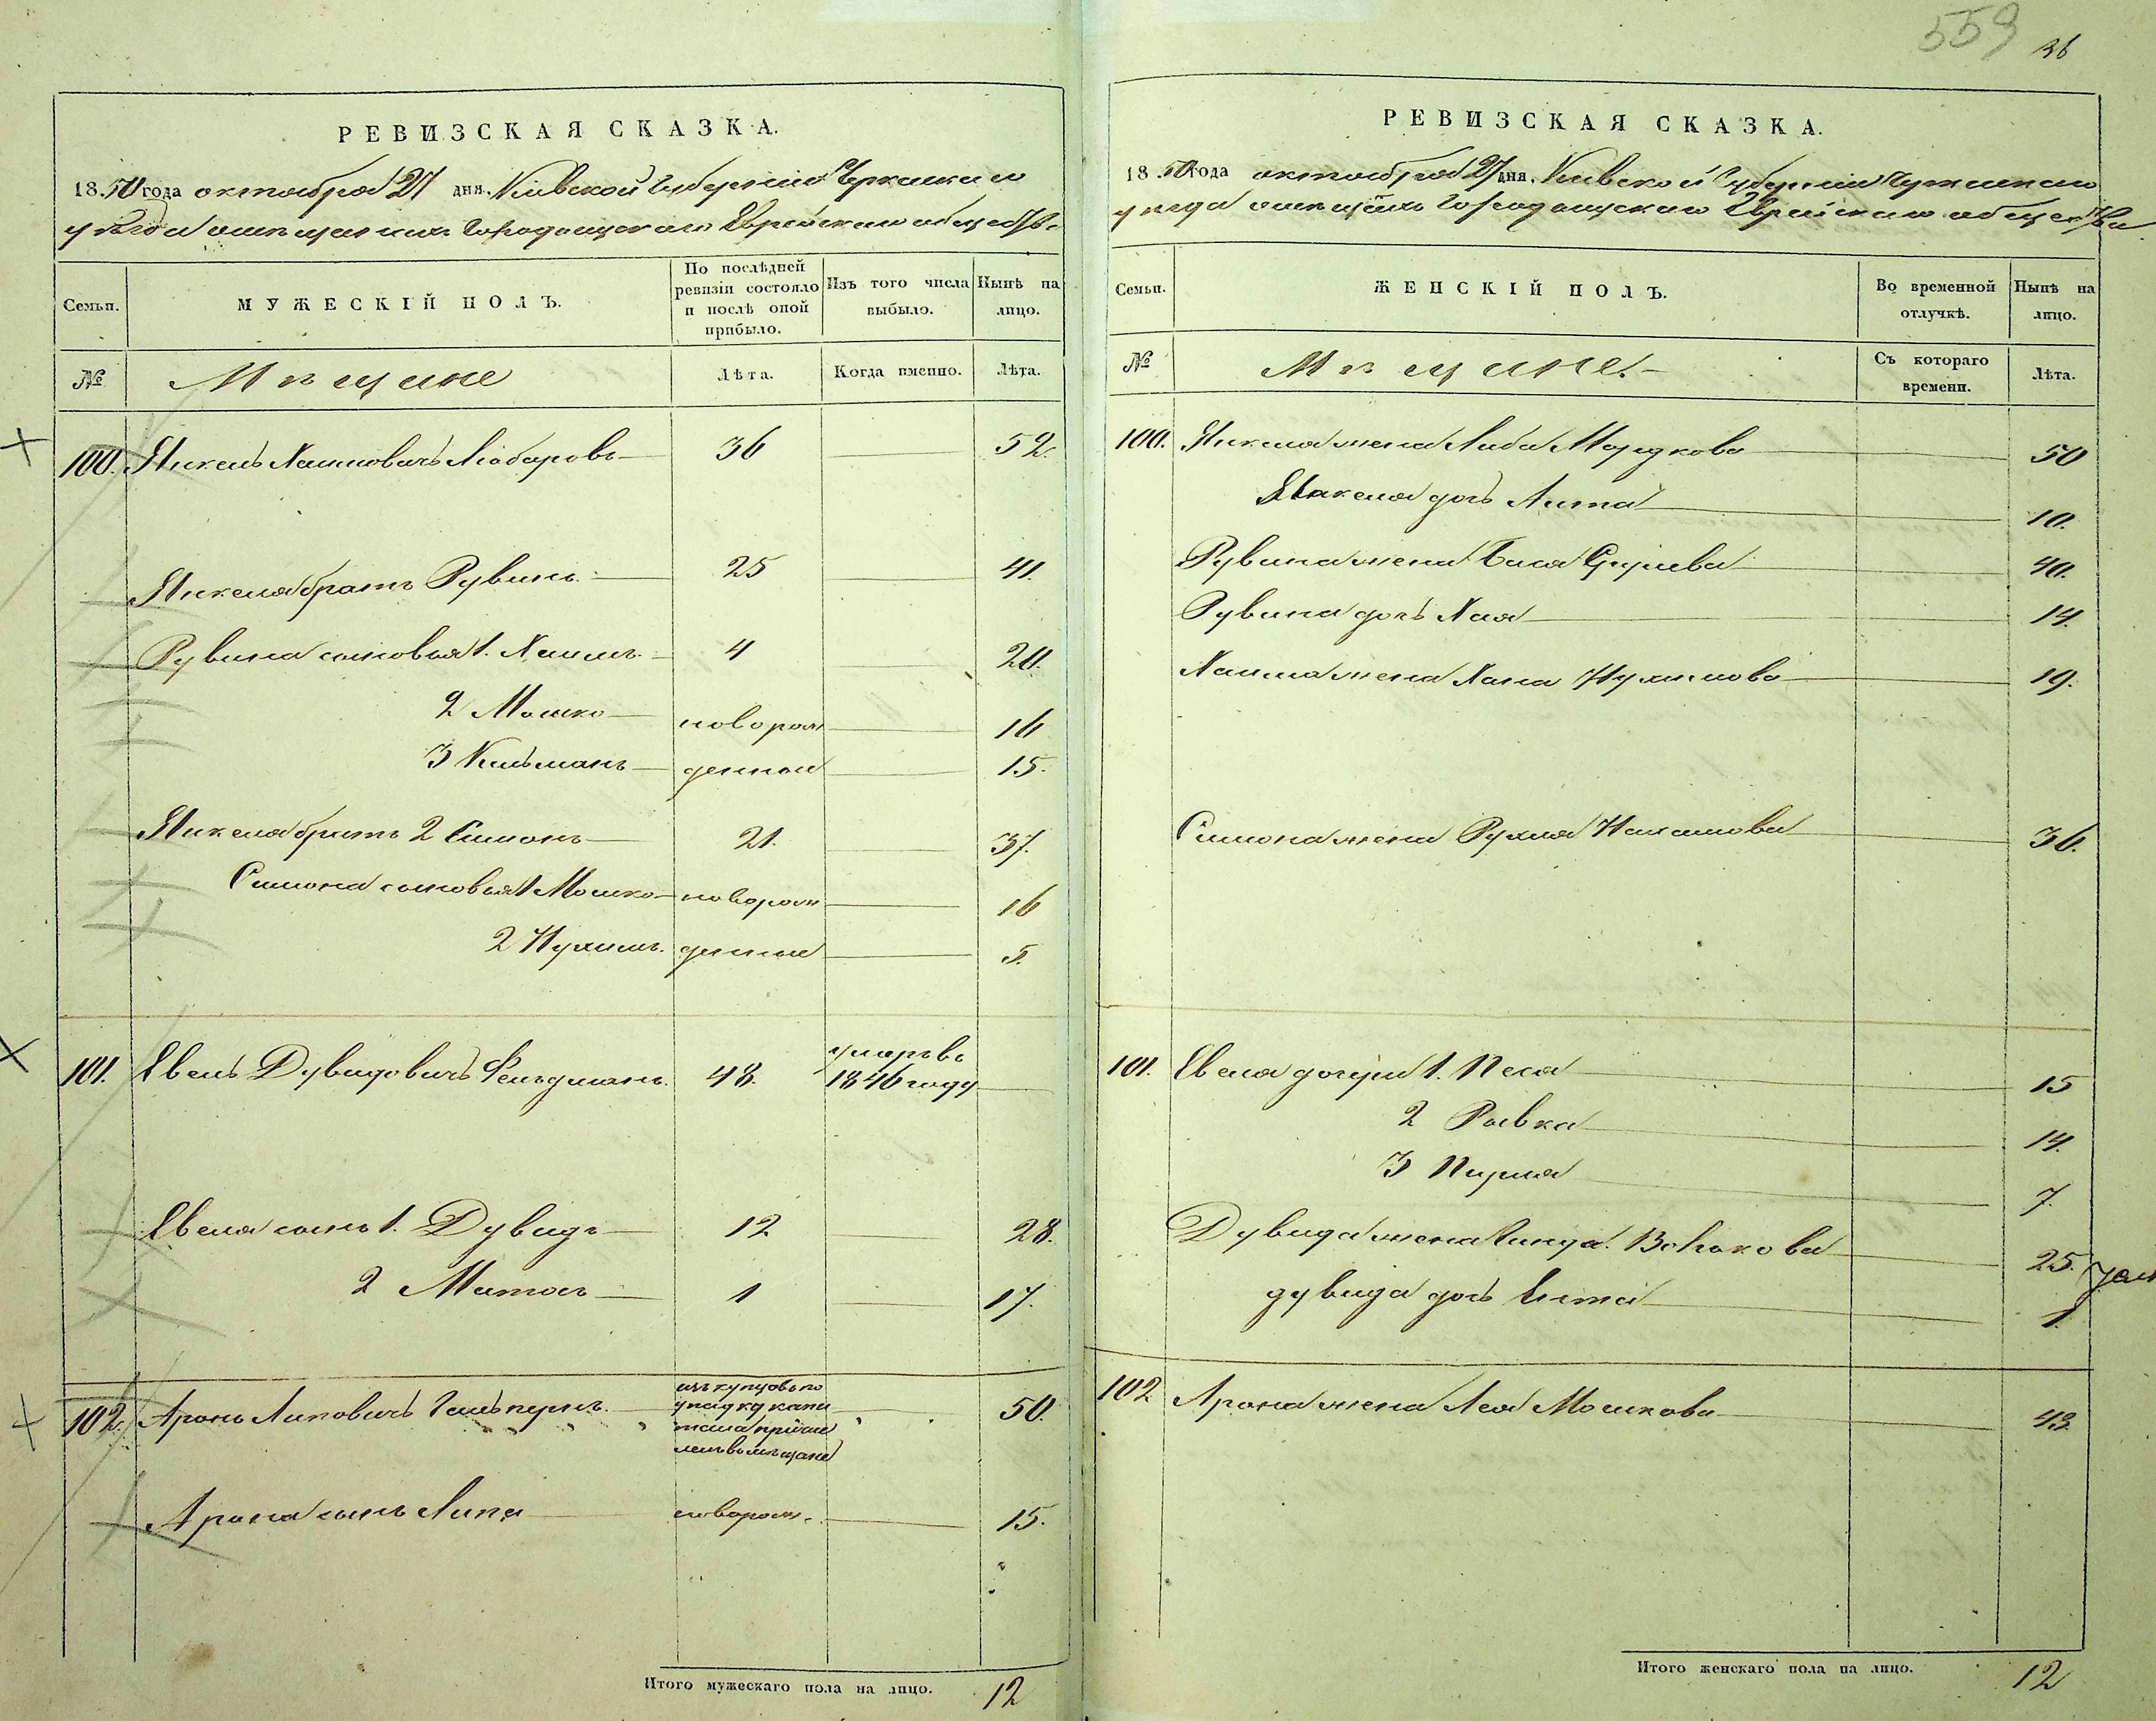 559
36
РЕВИЗСКАЯ СКАЗКА.
1850 года октября 27 дня, Кіевской Губерніи Черкаскаго
уѣзда о мещанахъ Городищскаго Еврейскаго общества
Семьи.
МУЖЕСКІЙ ПОЛЪ.
По послѣдней ревизіи состояло и послѣ оной прибыло.
Изъ того числа выбыло.
Нынѣ на лицо.
№
Мѣщане
Лѣта.
Когда именно.
Лѣта.
100. Янкель Хаимовичъ Любаровъ 36 52.
Янкеля братъ Рувинъ 25 41.
Рувина сыновья 1. Хаимъ 4 20.
2 Мошко новорож 16
3 Кельманъ денные 15.
Янкеля братъ 2 Симонъ 21. 37.
Симона сыновья 1 Мошко новорож 16
2 Нухимъ денные 5.
101. Евель Дувидовичъ Фельдманъ 48. умеръ въ 1846 году
Евеля сынъ 1. Дувидъ 12 28.
2 Матом 1 17.
102. Аронъ Липовичъ Гальперинъ изъ купцовъ по
упадку капи
тала причис
ленъ въ мѣщане 50.
Арона сынъ Липа новорож. 15.
Итого мужескаго пола на лицо. 12
РЕВИЗСКАЯ СКАЗКА.
1850 года октября 27 дня, Кіевской Губерніи Черкаскаго
уѣзда о мещанахъ Городищскаго Еврейскаго общества
Семьи.
ЖЕНСКІЙ ПОЛЪ.
Во временной отлучкѣ.
Нынѣ на лицо.
№
Мѣщане.
Съ котораго времени.
Лѣта.
100. Янкеля жена Либа Мордкова 50
Янкеля дочь Лита 10.
Рувина жена Бася Сруліева 40.
Рувина дочь Хая 14.
Хаима жена Хана Нухимова 19.
Симона жена Рухля Нахимова 36.
101. Евеля дочери 1. Песя 15
2 Ривка 14.
3 Перля 7.
Дувида жена Гинда Волькова 25.
дувида дочь Гита 1.
102 Арона жена Лея Мошкова 43.
Итого женскаго пола на лицо. 12